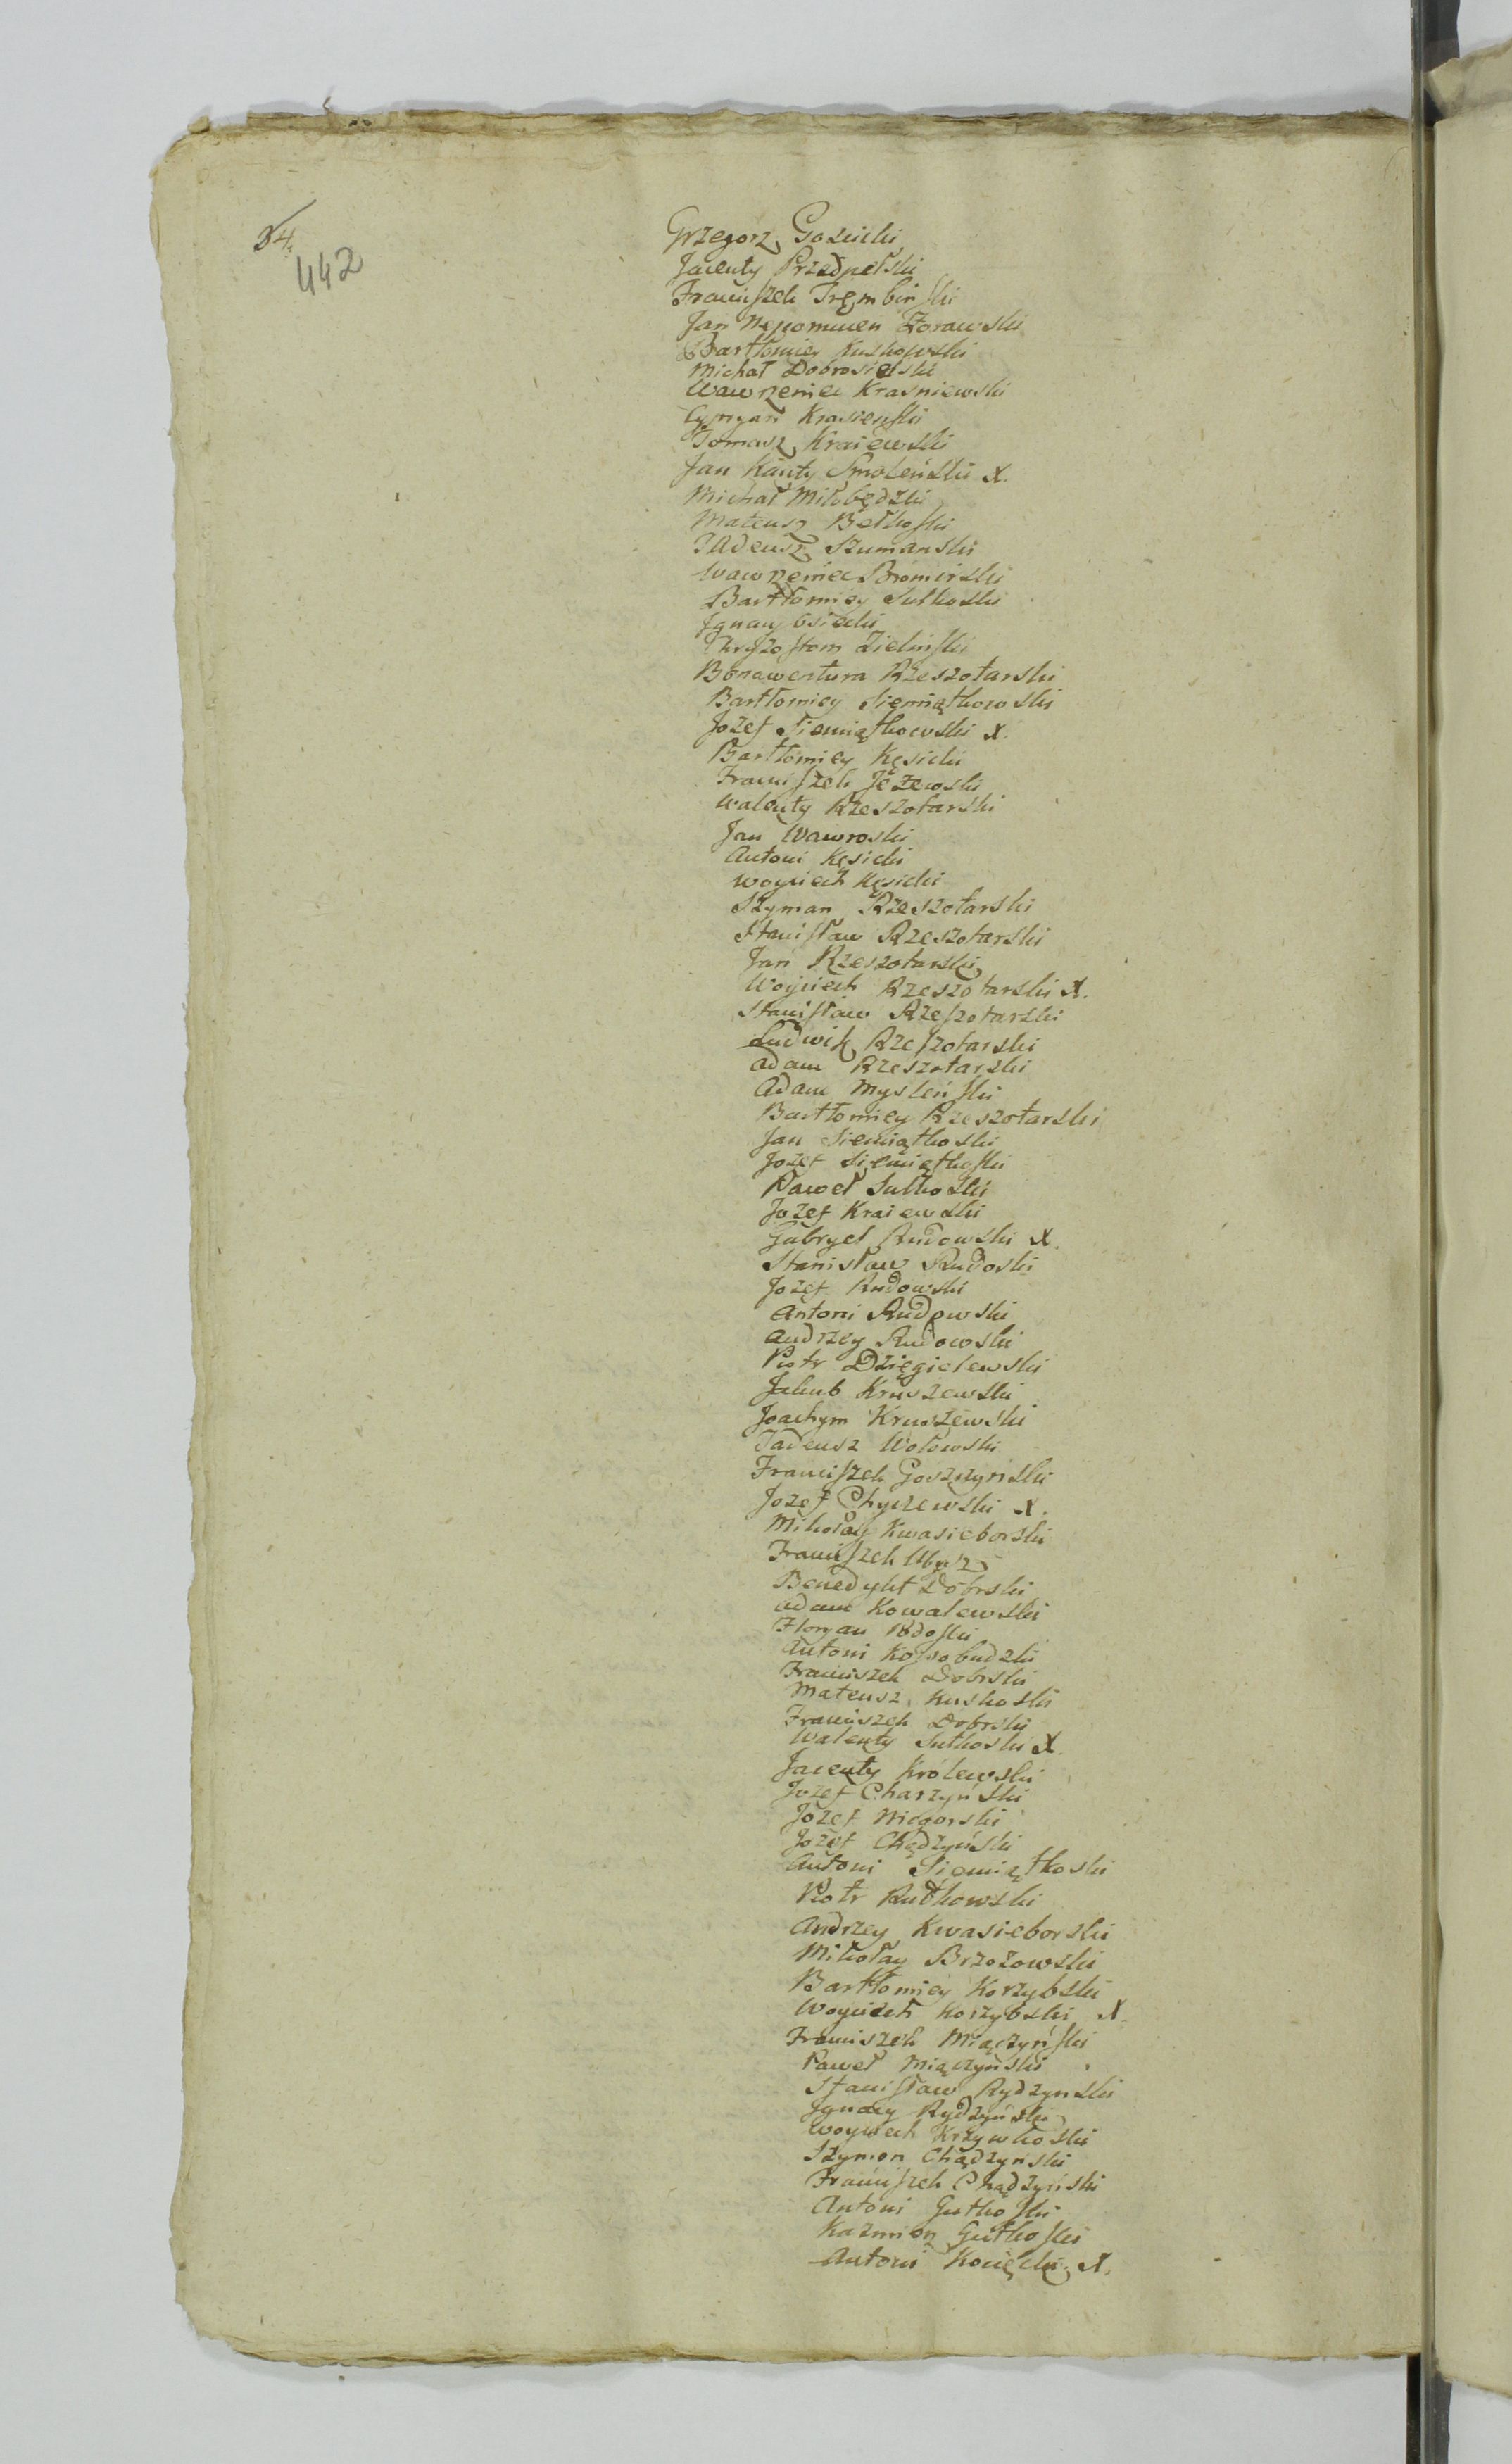 34.
442
Grzegorz Gozicki
Jacenty Przedpełski
Franciszek Trembinski
Jan Nepomucen Żorawski
Bartłomiey Kuskowski
Michał Dobrosielski
Wawrzeniec Krasniewski
Cypryan Krasienski
Tomasz Kraiewski
Jan Kanty Smoleński X.
Michał Miłobędzki
Mateusz Bełkoski
Tadeusz Szumanski
Wawrzeniec Bromirski
Bartłomiey Sutkoski
Ignacy Osiecki
Chryzostom Zielinski
Bonawentura Rzeszotarski
Bartłomiey Siemiątkowski
Jozef Siemiątkowski X.
Bartłomiey Kęsicki
Franciszek Jeżewski
Walenty Rzeszotarski
Jan Wawroski
Antoni Kęsicki
Woyciech Kęsicki
Szyman Rzeszotarski
Stanisław Rzeszotarski
Jan Rzeszotarski
Woyciech Rzeszotarski X.
Stanisław Rzeszotarski
Ludwik Rzeszotarski
Adam Rzeszotarski
Adam Mysleński
Bartłomiey Rzeszotarski
Jan Siemiątkoski
Jozef Siemiątkoski
Paweł Sutkoski
Jozef Kraiewski
Gabryel Rudowski X.
Stanisław Rudoski
Jozef Rudowski
Antoni Rudowski
Andrzey Rudowski
Piotr Dzięgielewski
Jakub Kruszewski
Joachym Kruszewski
Tadeusz Wołowski
Franciszek Goszczynski
Jozef Chyczewski X.
Mikołay Kwasieborski
Franciszek Ubysz
Benedykt Dobrski
Adam Kowalewski
Floryan Podoski
Antoni Kossobudzki
Franciszek Dobrski
Mateusz Kuskoski
Franciszek Dobrski
Walenty Sutkoski X.
Jacenty Królewski
Jozef Charzyński
Jozef Niegorski
Jozef Chądzyński
Antoni Siemiątkoski
Piotr Rutkowski
Andrzey Kwasieborski
Mikołay Brzozowski
Bartłomiey Korzybski
Woyciech Korzybski X.
Franciszek Miączyński
Paweł Miączyński
Stanisław Rydzynski
Ignacy Rydzyński
Woyciech Krzywkoski
Szymon Chądzyński
Franciszek Chądzyński
Antoni Gutkoski
Kazmierz Gutkoski
Antoni Konięcki X.